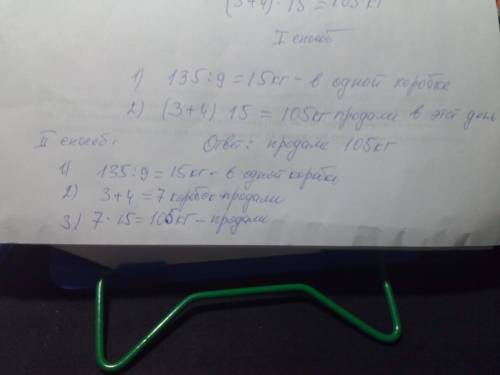 (3+4)·15=105кг
I способ
1) 135:9=15кг - в одной коробке
2) (3+4)·15=105кг продали в этот день
Ответ: продали 105кг
II способ:
1) 135:9=15кг - в одной коробке
2) 3+4=7 коробок продали
3) 7·15=105кг - продали